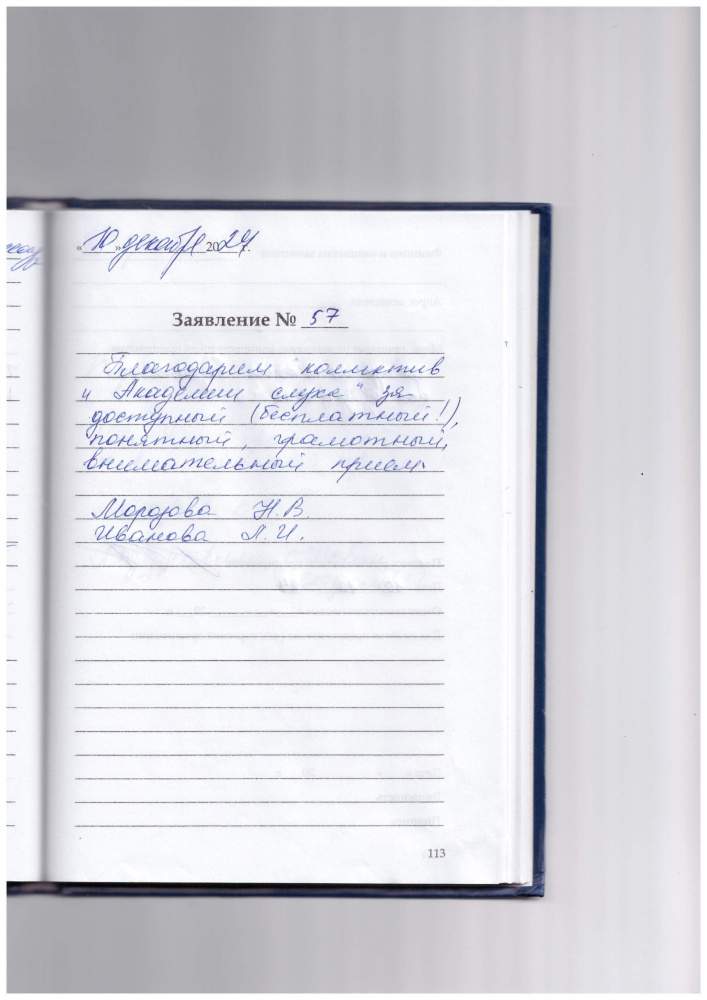 «10» декабря 2024г.
Заявление № 57
Благодарим коллектив
"Академии слуха" за
доступный (бесплатный!),
понятный, грамотный,
внимательный прием.
Морозова Н.В.
Иванова Л.И.
113